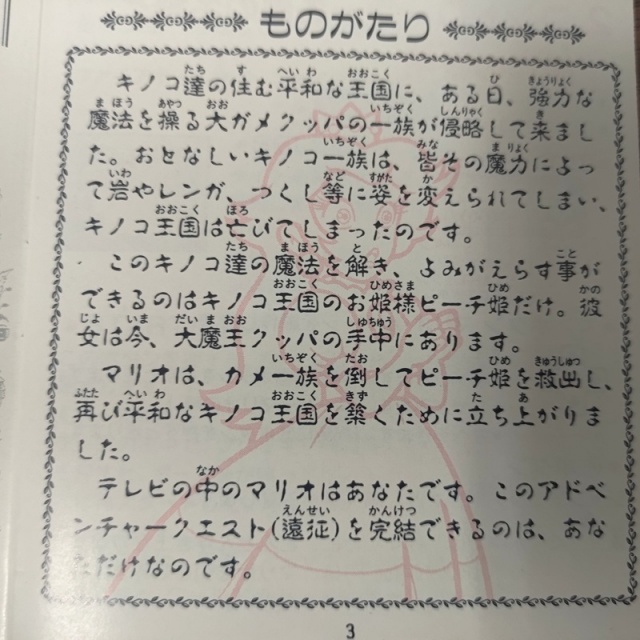 ものがたり
キノコ達の住む平和な王国に、ある日、強力な
魔法を操る大ガメクッパの一族が侵略して来まし
た。おとなしいキノコ一族は、皆その魔力によっ
て岩やレンガ、つくし等に姿を変えられてしまい、
キノコ王国は亡びてしまったのです。
このキノコ達の魔法を解き、よみがえらす事が
できるのはキノコ王国のお姫様ピーチ姫だけ。彼
女は今、大魔王クッパの手中にあります。
マリオは、カメ一族を倒してピーチ姫を救出し、
再び平和なキノコ王国を築くために立ち上がりま
した。
テレビの中のマリオはあなたです。このアドベ
ンチャークエスト(遠征)を完結できるのは、あな
ただけなのです。
3